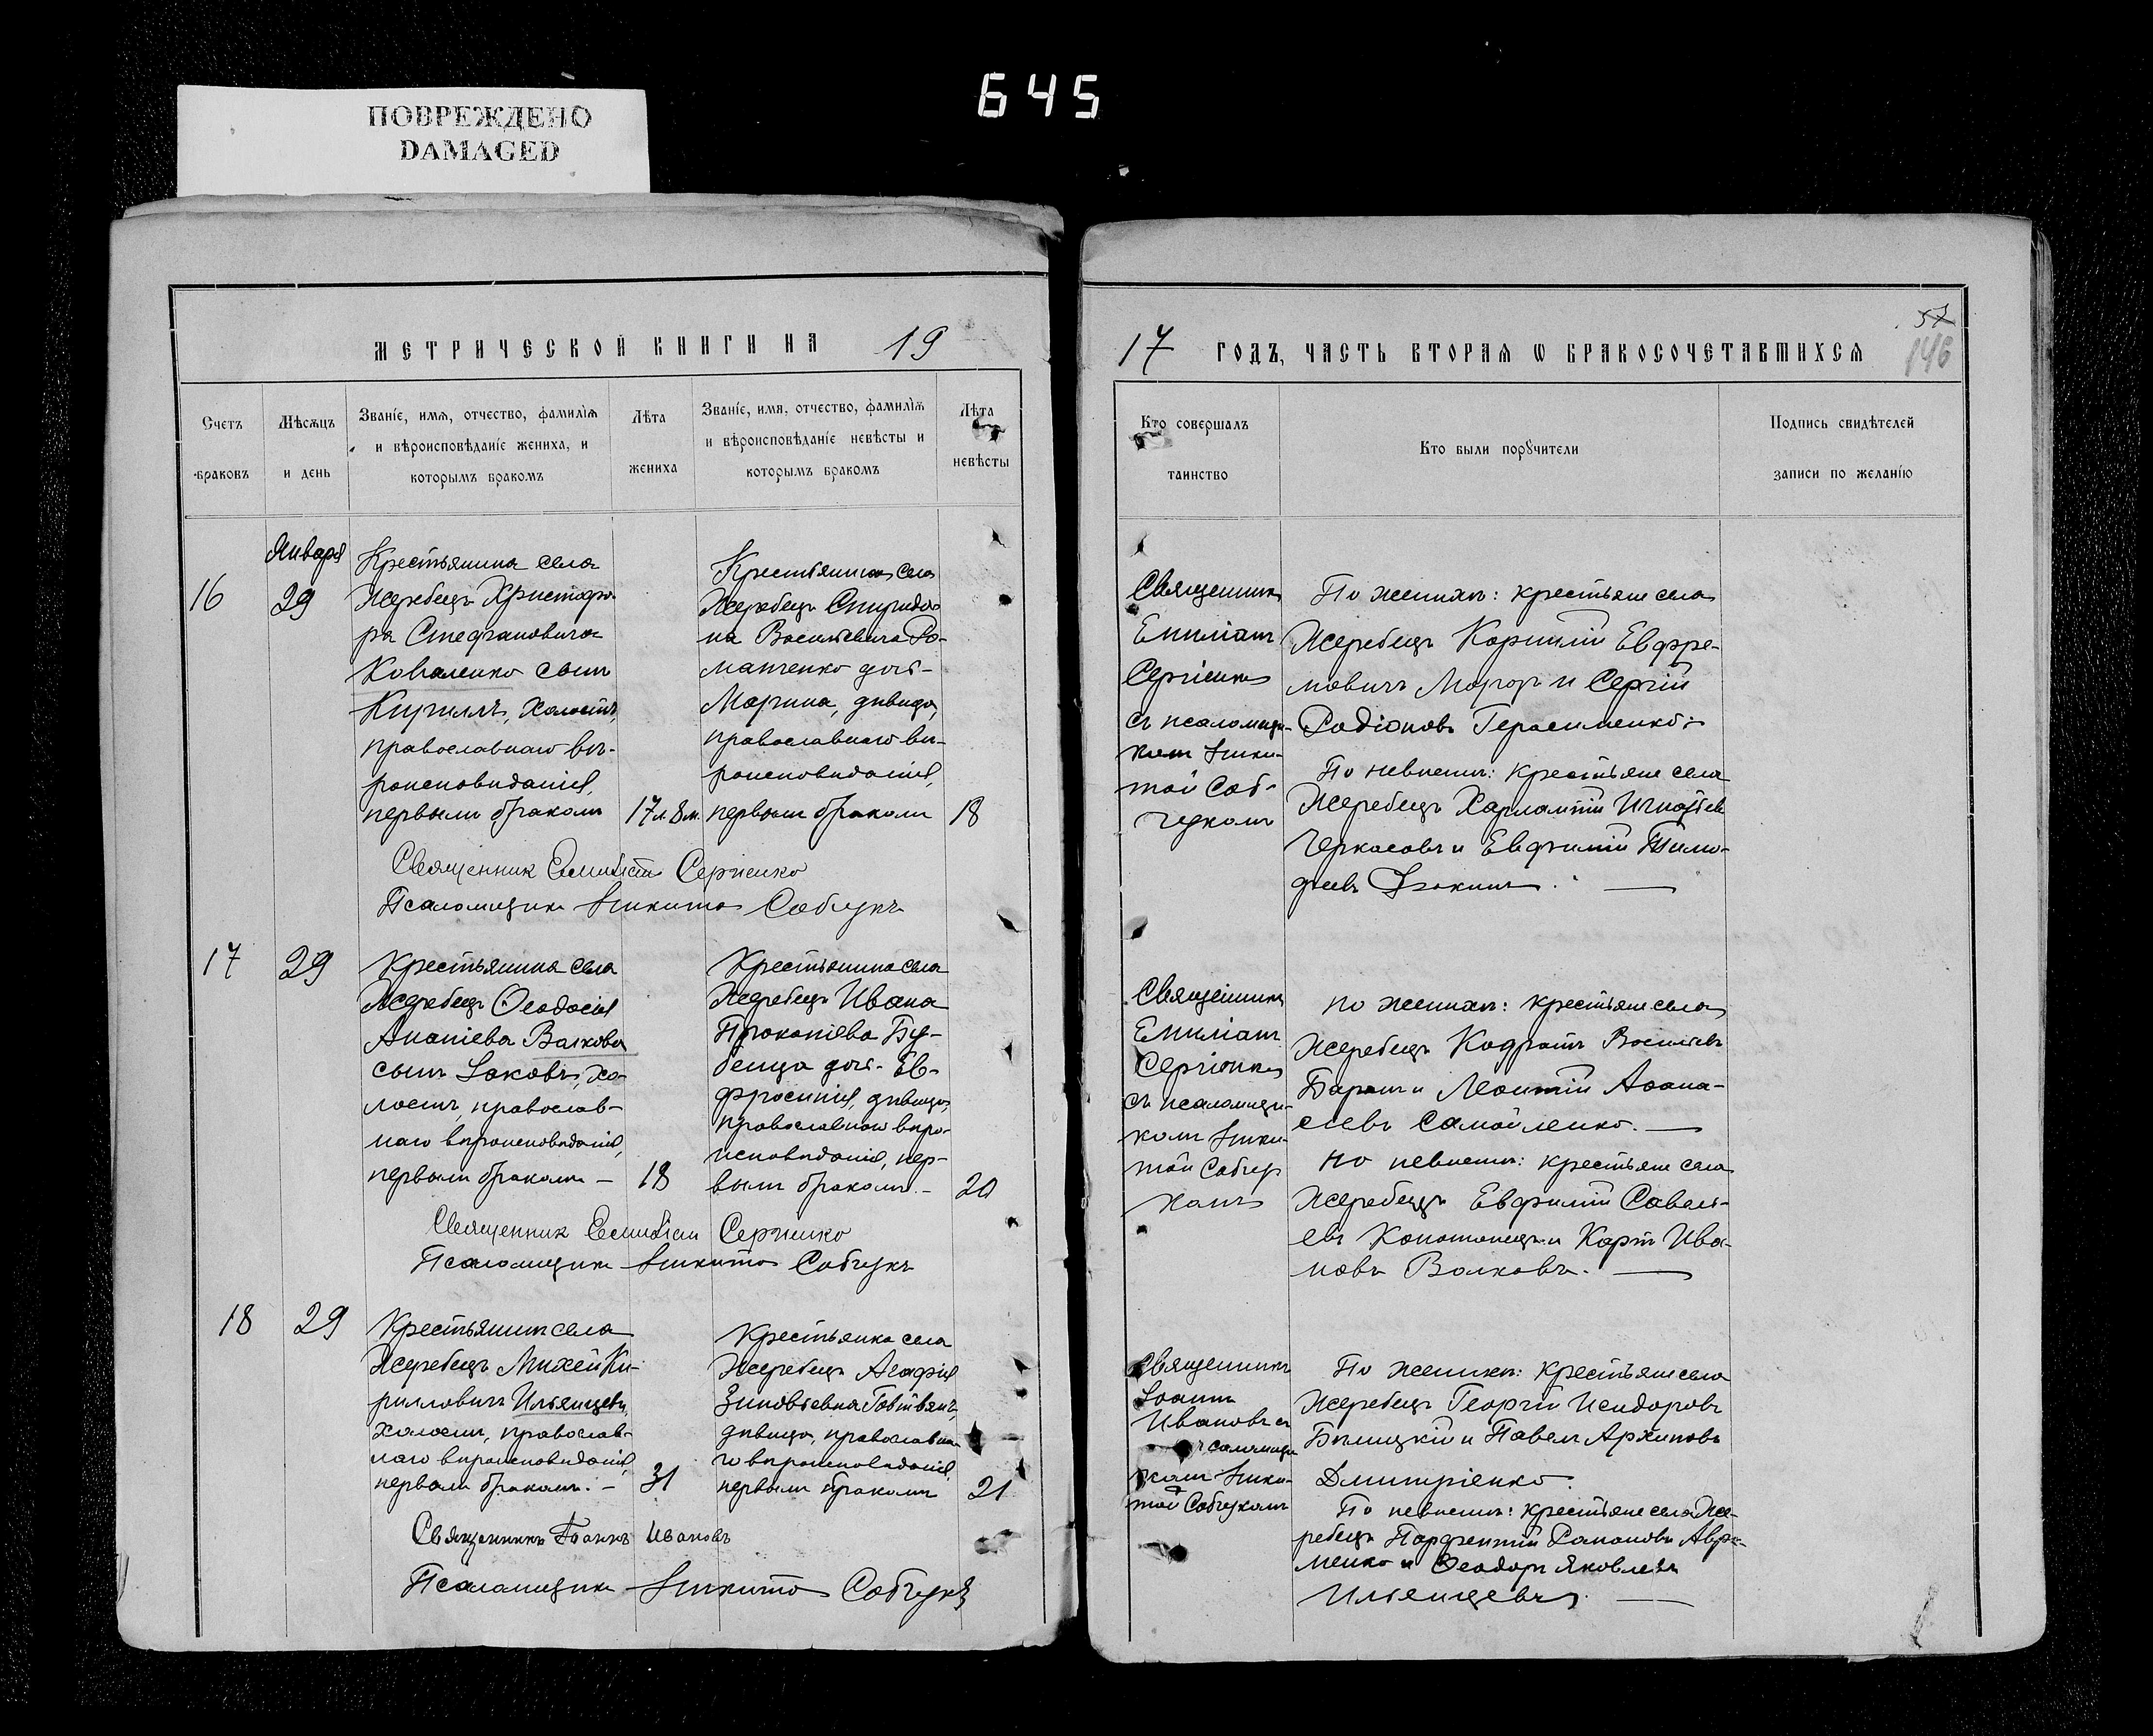 645
ПОВРЕЖДЕНО
DAMAGED
МЕТРИЧЕСКОЙ КНИГИ НА 19
Счетъ
браковъ
Мѣсяцъ
и день
Званіе, имя, отчество, фамилія
и вѣроисповѣданіе жениха, и
которымъ бракомъ
Лѣта
жениха
Званіе, имя, отчество, фамилія
и вѣроисповѣданіе невѣсты и
которымъ бракомъ
Лѣта
невѣсты
Января
16
29
Крестьянина села
Жеребецъ Христофо-
ра Стефановича
Коваленко сынъ
Кириллъ, холостъ,
православнаго вѣ-
роисповѣданія,
первымъ бракомъ
17 л. 8 м.
Крестьянина села
Жеребецъ Спиридо-
на Васильевича Ро-
манченко дочь-
Марина, дѣвица,
православнаго вѣ-
роисповѣданія,
первымъ бракомъ
18
Священник Емиліан Сергіенко
Псаломщикъ Никита Собчукъ
17
29
Крестьянина села
Жеребецъ Ѳеодосія
Ананіева Волкова
сынъ Іаковъ, хо-
лостъ, православ-
наго вѣроисповѣданія,
первымъ бракомъ –
18
Крестьянина села
Жеребецъ Ивана
Прокопіева Бу-
бенца дочь- Ев-
фросинія, дѣвица,
православнаго вѣро-
исповѣданія, пер-
вымъ бракомъ. –
20
Священник Емиліан Сергіенко
Псаломщикъ Никита Собчукъ
18
29
Крестьянинъ села
Жеребецъ Михей Ки-
рилловичъ Ильяшевъ,
холостъ, православ-
наго вѣроисповѣданія,
первымъ бракомъ. –
31
Крестьянка села
Жеребецъ Агафія
Зиновьевна Говтвянъ,
дѣвица, православна-
го вѣроисповѣданія,
первымъ бракомъ
21
Священникъ Іоаннъ Ивановъ
Псаломщикъ Никита Собчукъ
57
146
17 ГОДЪ, ЧАСТЬ ВТОРАЯ Ѡ БРАКОСОЧЕТАВШИХСЯ
Кто совершалъ
таинство
Кто были порꙋчители
Подпись свидѣтелей
записи по желанію
Священникъ
Емиліанъ
Сергіенко
съ псаломщи-
комъ Ники-
той Соб-
чукомъ
По женихѣ: крестьяне села
Жеребецъ Корнилій Евфре-
мовичъ Мороз и Сергій
Родіоновъ Герасименко;
По невѣстѣ: крестьяне села
Жеребецъ Харлампій Игнатіев
Черкасовъ и Евфимій Тимо-
феевъ
Священникъ
Емиліанъ
Сергіенко
съ псаломщи-
комъ Ники-
той Собчу
комъ
по женихѣ: крестьяне села
Жеребецъ Кодратъ Васильевъ
Баранъ и Леонтій Аѳана-
сіевъ Самойленко. —
по невѣстѣ: крестьяне села
Жеребецъ Евфимій Савель-
евъ Конотопецъ и Карпъ Ива-
новъ Волковъ. —
Священникъ
Іоаннъ
Ивановъ съ
псаломщи
комъ Ники-
той Собчукомъ
По женихѣ: крестьяне села
Жеребецъ Георгій Исидоровъ
Бѣлицкій и Павелъ Архиповъ
Дмитріенко.
По невѣстѣ: крестьяне села Же-
ребецъ Парфентій Романовъ Авра-
менко и Ѳеодоръ Яковлевъ
Ильяшевъ. —